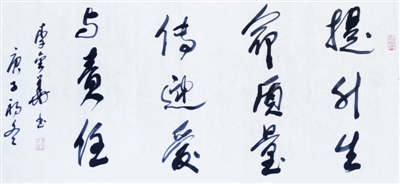 提升生
命质量
传递爱
与责任
庚子初冬